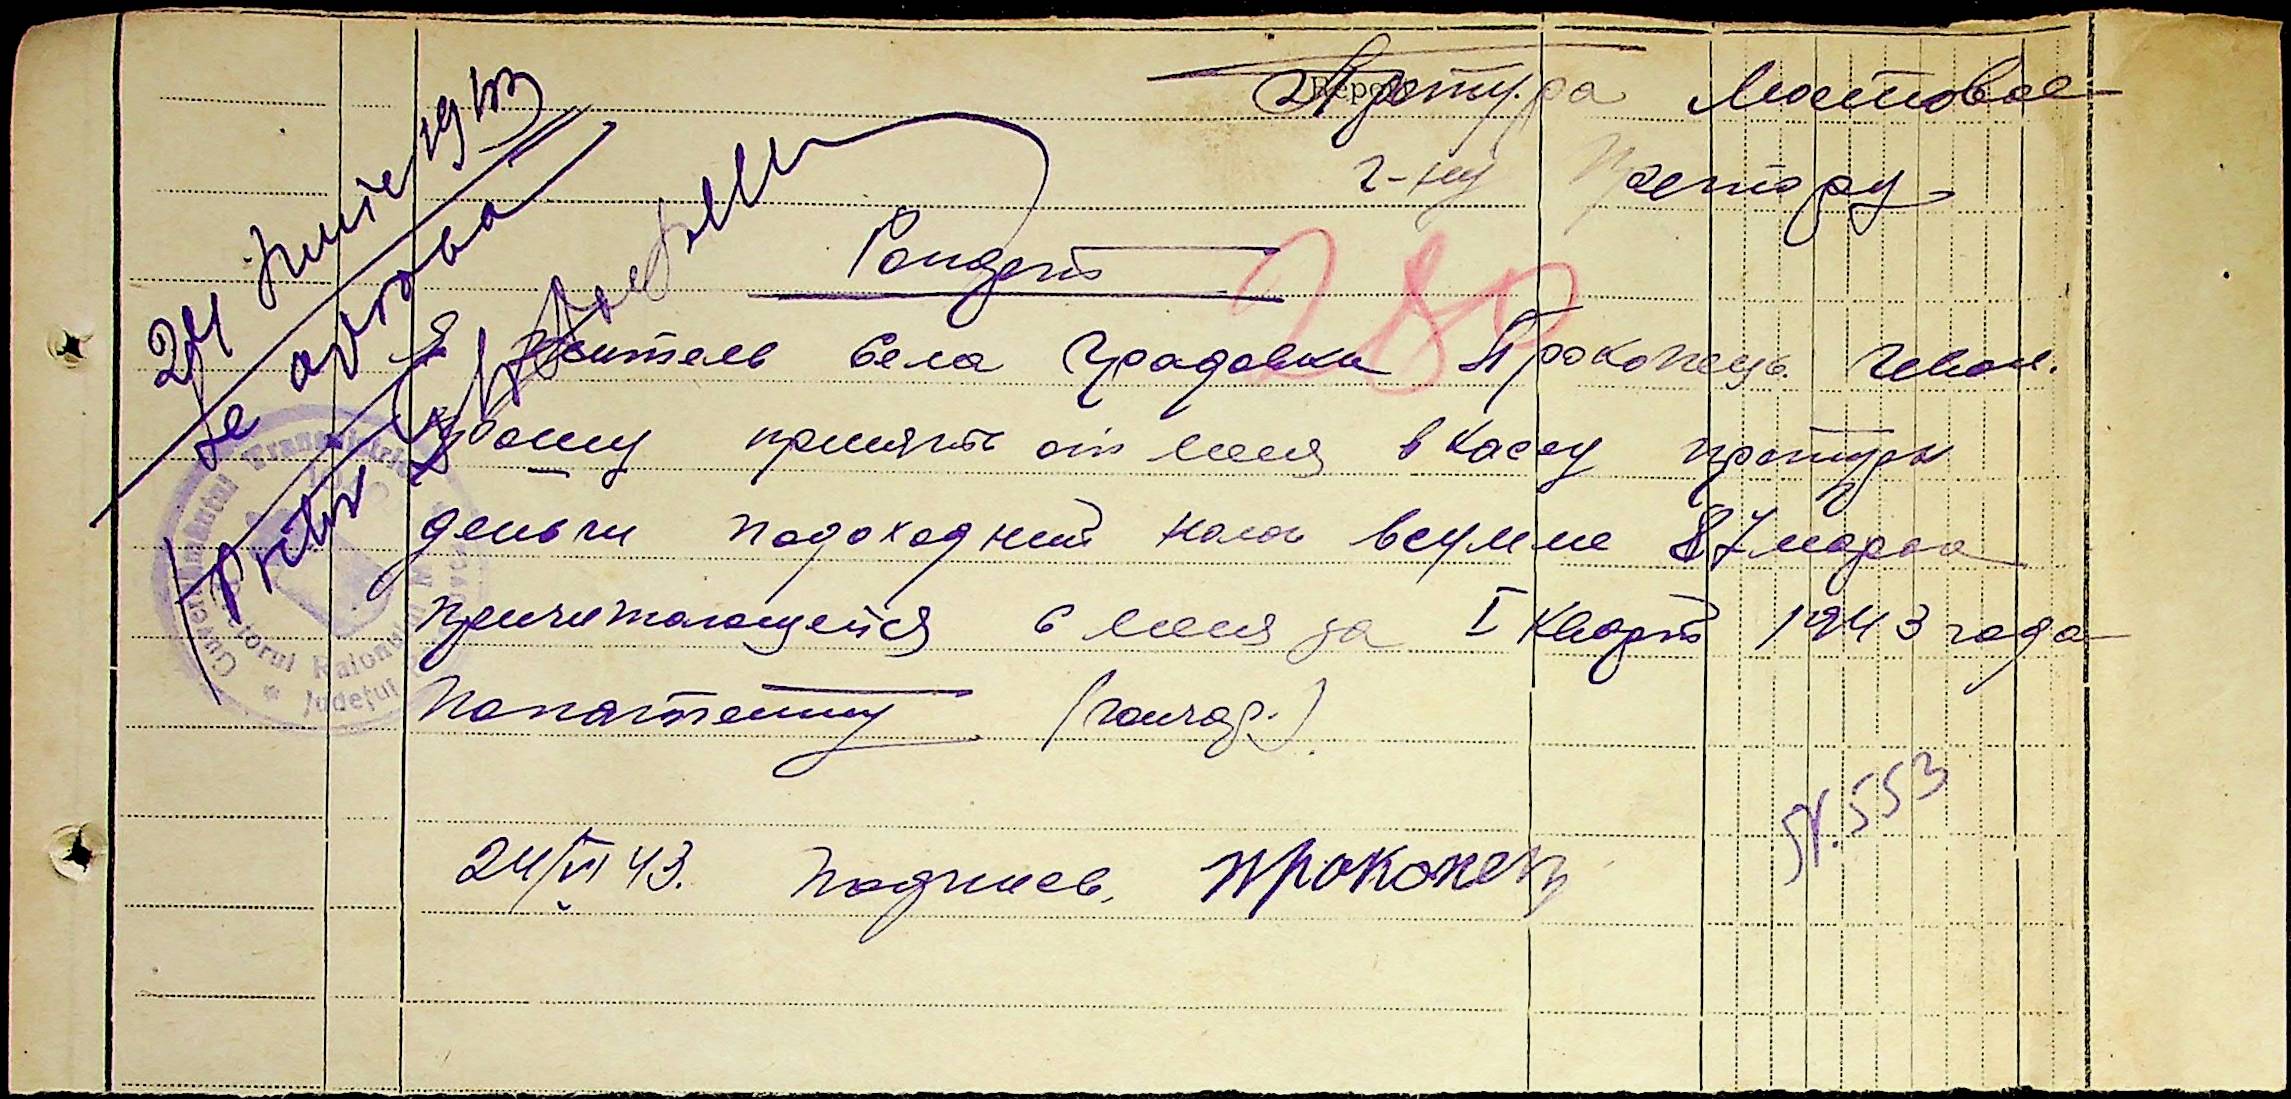 Претура Мостовое
г-ну Претору
Рапорт
280
Я житель села Градовки Прокопець Иван.
прошу принять от меня в кассу претуры
деньги подоходний налог всумме 87 марок
причитающейся с меня за I кварт 1943 года
по патенту (гончар.)
24/VI 43. Подпись. Прокопец
Nr. 553
24 Junie 1943
Se aprobă
Pretor
Guvernământul Transnistriei
Pretorul Raionului
* Județul